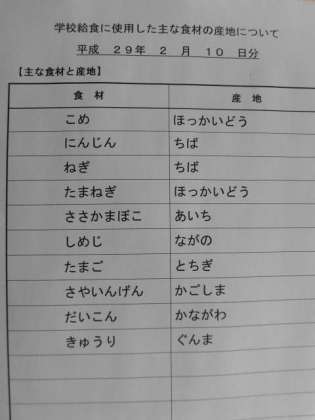 学校給食に使用した主な食材の産地について
平成 29年 2 月 10 日分
【主な食材と産地】
食 材 産 地
こめ ほっかいどう
にんじん ちば
ねぎ ちば
たまねぎ ほっかいどう
ささかまぼこ あいち
しめじ ながの
たまご とちぎ
さやいんげん かごしま
だいこん かながわ
きゅうり ぐんま